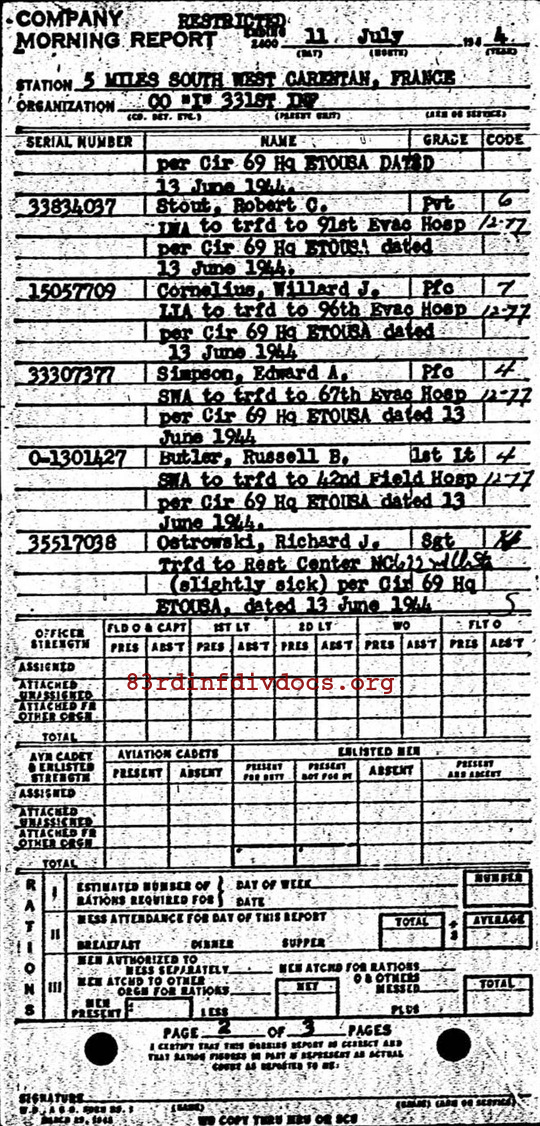 COMPANY RESTRICTED
MORNING REPORT ENDING 2400 11 July 194 4
(DAY) (MONTH) (YEAR)
STATION 5 MILES SOUTH WEST CARENTAN, FRANCE
ORGANIZATION CO "I" 331ST INF
(CO. DET. ETC.) (PARENT UNIT) (ARM OR SERVICE)
SERIAL NUMBER NAME GRADE CODE
per Cir 69 Hq ETOUSA DATED
13 June 1944.
33834037 Stout, Robert C. Pvt 6
to trfd to 91st Evac Hosp 12-77
per Cir 69 Hq ETOUSA dated
13 June 1944.
15057709 Cornelius, Willard J. Pfc 7
LIA to trfd to 96th Evac Hosp 12-77
per Cir 69 Hq ETOUSA dated
13 June 1944
33307377 Simpson, Edward A. Pfc 4
SWA to trfd to 67th Evac Hosp 12-77
per Cir 69 Hq ETOUSA dated 13
June 1944
O-1301427 Butler, Russell B. 1st Lt 4
SWA to trfd to 42nd Field Hosp 12-77
per Cir 69 Hq ETOUSA dated 13
June 1944.
35517038 Ostrowski, Richard J. Sgt
Trfd to Rest Center
(slightly sick) per Cir 69 Hq
ETOUSA, dated 13 June 1944 5
OFFICER STRENGTH FLD O & CAPT 1ST LT 2D LT WO FLT O
PRES ABS'T PRES ABS'T PRES ABS'T PRES ABS'T PRES ABS'T
ASSIGNED
ATTACHED UNASSIGNED
83rdinfdivdocs.org
ATTACHED FR OTHER ORGN
TOTAL
AVN CADET & ENLISTED STRENGTH AVIATION CADETS ENLISTED MEN
PRESENT ABSENT PRESENT FOR DUTY PRESENT NOT FOR DY ABSENT PRESENT AND ABSENT
ASSIGNED
ATTACHED UNASSIGNED
ATTACHED FR OTHER ORGN
TOTAL
RATIONS
I ESTIMATED NUMBER OF RATIONS REQUIRED FOR DAY OF WEEK DATE NUMBER
II MESS ATTENDANCE FOR DAY OF THIS REPORT TOTAL ÷ 3 AVERAGE
BREAKFAST DINNER SUPPER
III MEN AUTHORIZED TO MESS SEPARATELY MEN ATCHD FOR RATIONS
MEN ATCHD TO OTHER ORGN FOR RATIONS NET & OTHERS MESSED TOTAL
MEN PRESENT LESS PLUS
PAGE 2 OF 3 PAGES
I CERTIFY THAT THIS MORNING REPORT IS CORRECT AND
THAT RATION FIGURES IN PART III REPRESENT AN ACTUAL
COUNT AS REPORTED TO ME:
SIGNATURE
(NAME) (GRADE) (ARM OR SERVICE)
W.D., A.G.O. FORM NO. 1
MARCH
WD COPY THRU MRU OR SCU